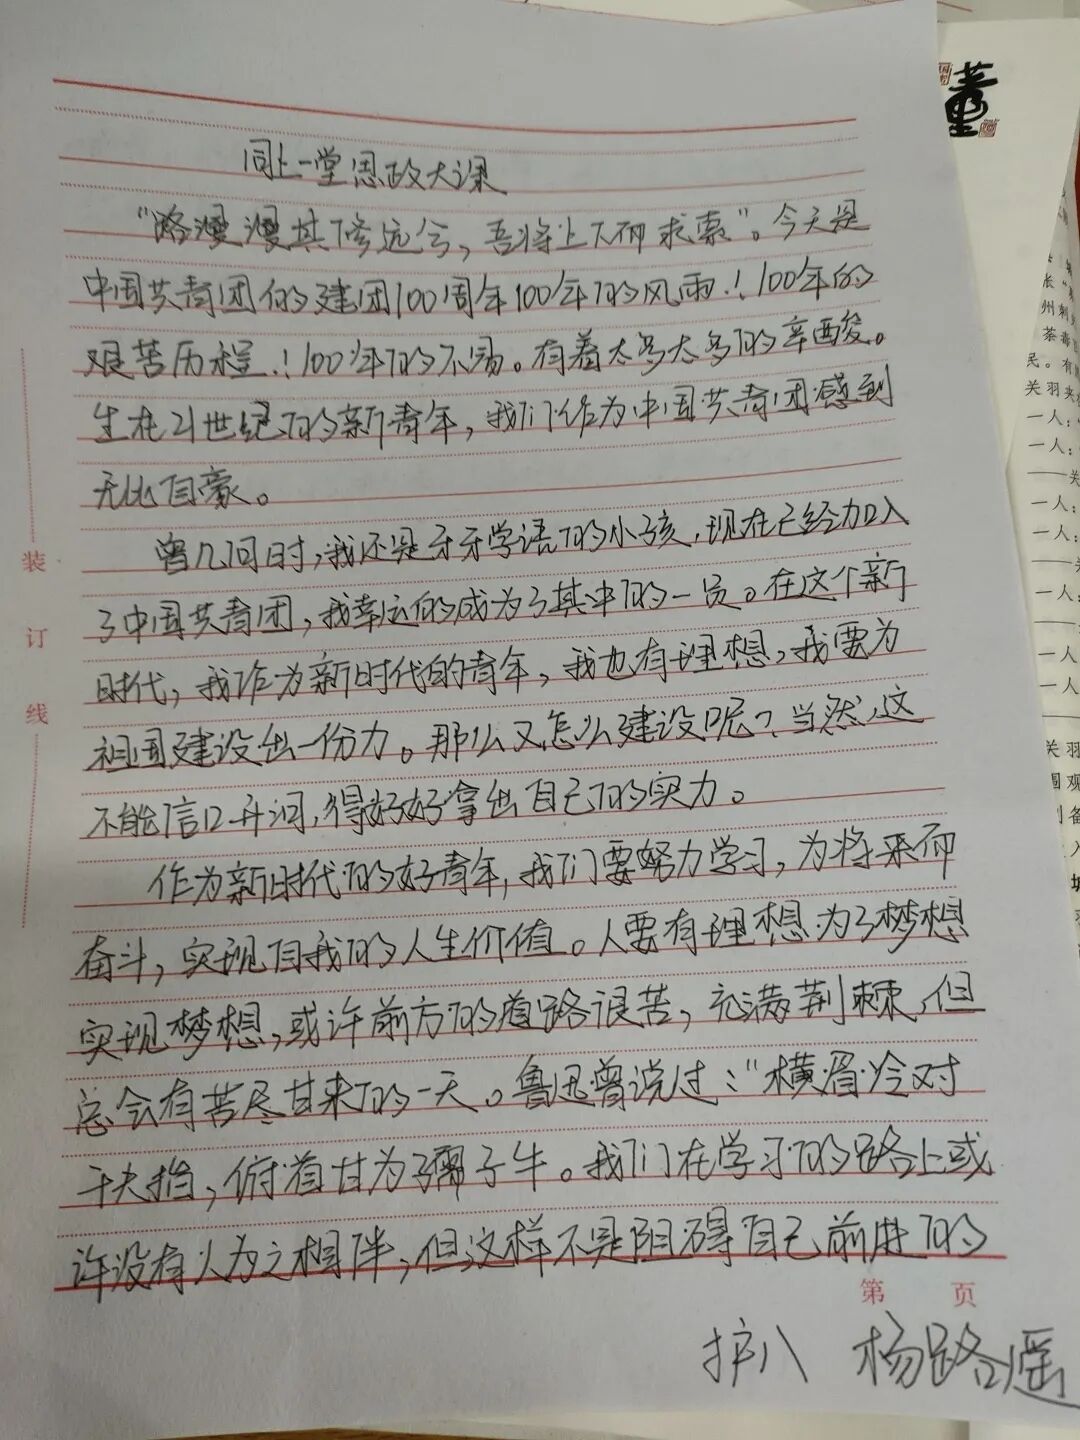 同上一堂思政大课
“路漫漫其修远兮，吾将上下而求索”。今天是
中国共青团的建团100周年100年的风雨！100年的
艰苦历程！100年的不易。有着太多太多的辛酸。
生在21世纪的新青年，我们作为中国共青团感到
无比自豪。
曾几何时，我还是牙牙学语的小孩，现在已经加入
了中国共青团，我幸运的成为了其中的一员。在这个新
时代，我作为新时代的青年，我也有理想，我要为
祖国建设出一份力。那么又怎么建设呢？当然，这
不能信口开河，得好好拿出自己的实力。
作为新时代的好青年，我们要努力学习，为将来而
奋斗，实现自我的人生价值。人要有理想为了梦想
实现梦想，或许前方的道路很苦，充满荆棘，但
总会有苦尽甘来的一天。鲁迅曾说过：“横眉冷对
千夫指，俯首甘为孺子牛。我们在学习的路上或
许没有人为之相伴，但这样不是阻碍自己前进的
第 页
护八 杨路遥
装
订
线
董
关羽
一人：
一人：
一人：
一人：
一人：